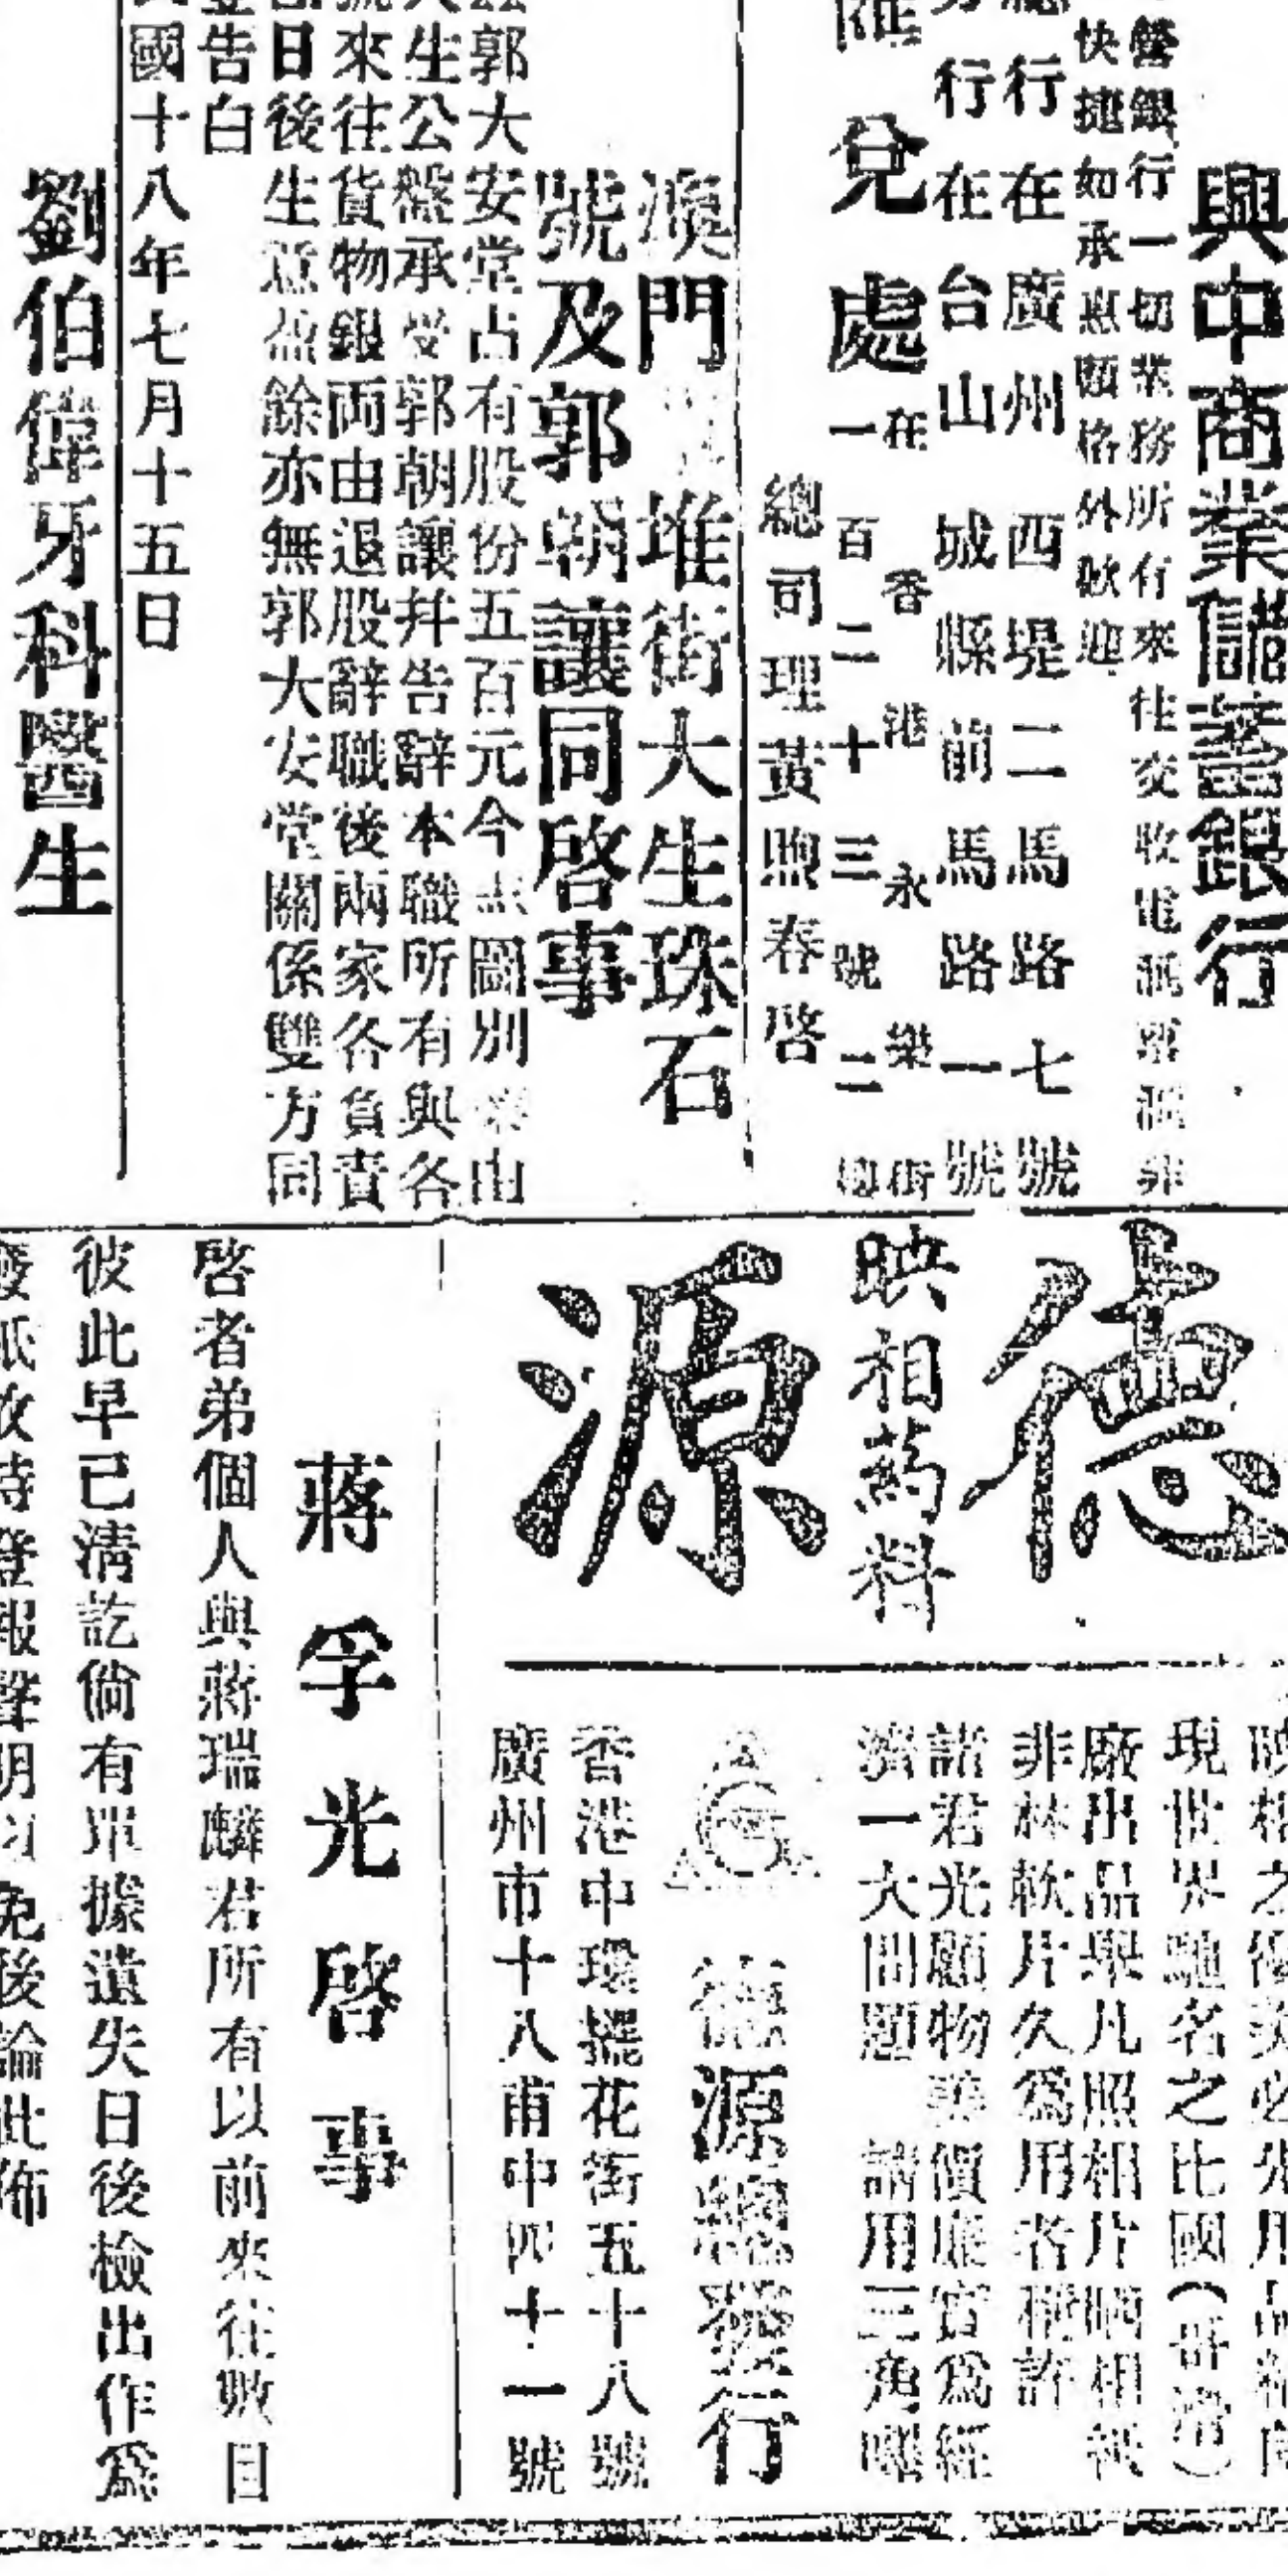 興中商業儲蓄銀行
營銀行一切業務所有來往交收電滙票滙
快捷如承惠顧格外歡迎
總行在廣州西堤二馬路七號
分行在台山城縣前馬路一號
匯兌處
在香港永樂街
一百二十三號二
總司理黃煦春啓
澳門 堆街大生珠石
號及郭朝讓同啓事
郭大安堂占有股份五百元今 圖別業由
生公盤承受郭朝讓幷告辭本職所有與各
號來往貨物銀両由退股辭職後兩家各負責
日後生意盈餘亦無郭大安堂關係雙方同
登告白
國十八年七月十五日
劉伯偉牙科醫生
德源
映相葯料
映相之優美必先用品精良
現世界馳名之比國
廠出品舉凡照相片晒相紙
非林軟片久爲用者稱許
諸君光顧物美價廉實爲經
濟一大問題 請用三角嘜
德源總發行
香港中環擺花街五十八號
廣州市十八甫中四十一號
蔣孚光啓事
啓者弟個人與蔣瑞麟君所有以前來往數目
彼此早已淸訖倘有單據遺失日後檢出作爲
廢紙故特登報聲明以免後論此佈